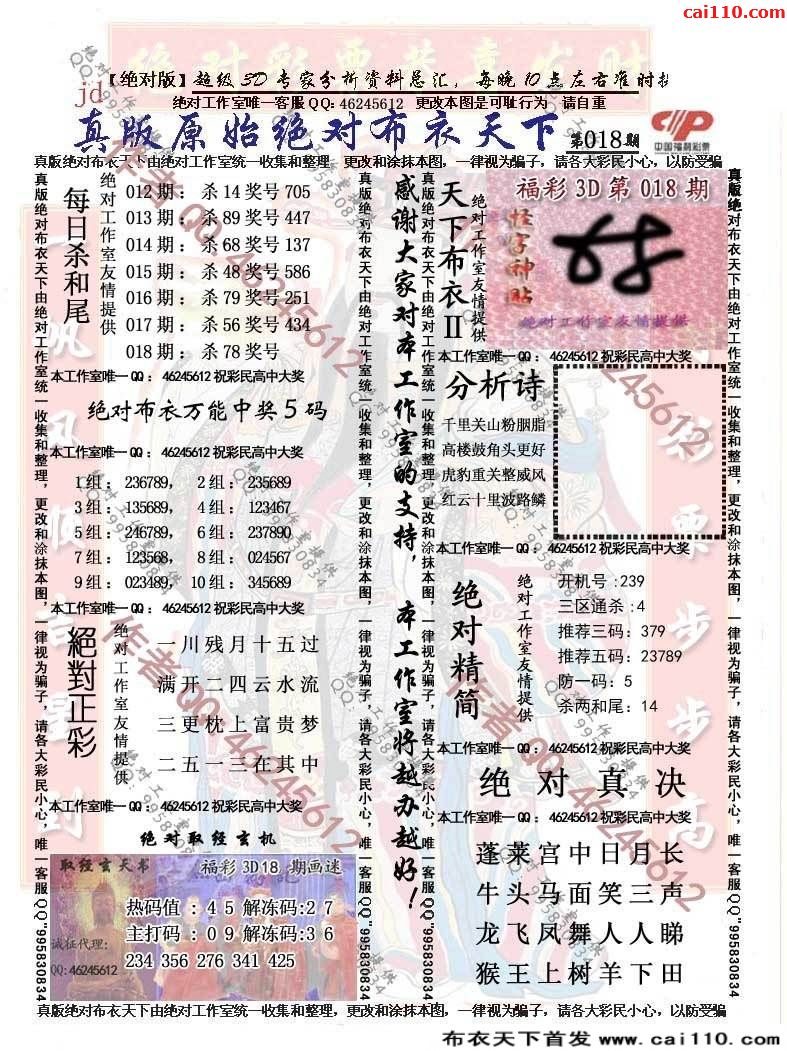 cai110.com
【绝对版】超级3D专家分析资料总汇，每晚10点左右准时
jd
绝对工作室唯一客服QQ:46245612 更改本图是可耻行为 请自重
真版原始绝对布衣天下 第018期
中国福利彩票
真版绝对布衣天下由绝对工作室统一收集和整理，更改和涂抹本图，一律视为骗子，请各大彩民小心，以防受骗
真版绝对布衣天下由绝对工作室统一收集和整理，更改和涂抹本图，一律视为骗子，请各大彩民小心，唯一客服QQ"995830834
每日杀和尾
绝对工作室友情提供
012期：杀14奖号705
013期：杀89奖号447
014期：杀68奖号137
015期：杀48奖号586
016期：杀79奖号251
017期：杀56奖号434
018期：杀78奖号
本工作室唯一QQ：46245612祝彩民高中大奖
绝对布衣万能中奖5码
本工作室唯一QQ：46245612祝彩民高中大奖
1组：236789，2组：235689
3组：135689，4组：123467
5组：246789，6组：237890
7组：123568，8组：024567
9组：023489，10组：345689
本工作室唯一QQ：46245612祝彩民高中大奖
絕對正彩
绝对工作室友情提供
一川残月十五过
满开二四云水流
三更枕上富贵梦
二五一三在其中
本工作室唯一QQ：46245612祝彩民高中大奖
绝对取经玄机
取经玄天书 福彩3D18期画迷
热码值：45解冻码:27
主打码：09解冻码:36
诚征代理:
QQ:46245612
234 356 276 341 425
真版绝对布衣天下由绝对工作室统一收集和整理，更改和涂抹本图，一律视为骗子，请各大彩民小心，唯一客服QQ"995830834
感谢大家对本工作室的支持，本工作室将越办越好！
真版绝对布衣天下由绝对工作室统一收集和整理，更改和涂抹本图，一律视为骗子，请各大彩民小心，唯一客服QQ"995830834
天下布衣II
绝对工作室友情提供
福彩3D第018期
怪字神贴
绝对工作室友情提供
本工作室唯一QQ：46245612祝彩民高中大奖
分析诗
千里关山粉胭脂
高楼鼓角头更好
虎豹重关整威风
红云十里波路鳞
本工作室唯一QQ：46245612祝彩民高中大奖
绝对精简
绝对工作室友情提供
开机号:239
三区通杀:4
推荐三码:379
推荐五码:23789
防一码：5
杀两和尾：14
本工作室唯一QQ：46245612祝彩民高中大奖
绝对真决
本工作室唯一QQ：46245612祝彩民高中大奖
蓬莱宫中日月长
牛头马面笑三声
龙飞凤舞人人睇
猴王上树羊下田
真版绝对布衣天下由绝对工作室统一收集和整理，更改和涂抹本图，一律视为骗子，请各大彩民小心，唯一客服QQ"995830834
真版绝对布衣天下由绝对工作室统一收集和整理，更改和涂抹本图，一律视为骗子，请各大彩民小心，以防受骗
布衣天下首发 www.cai110.com